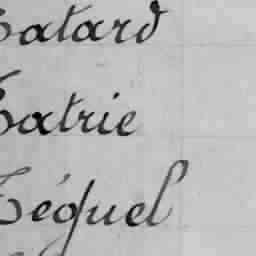 Latard
Latrie
Léquel